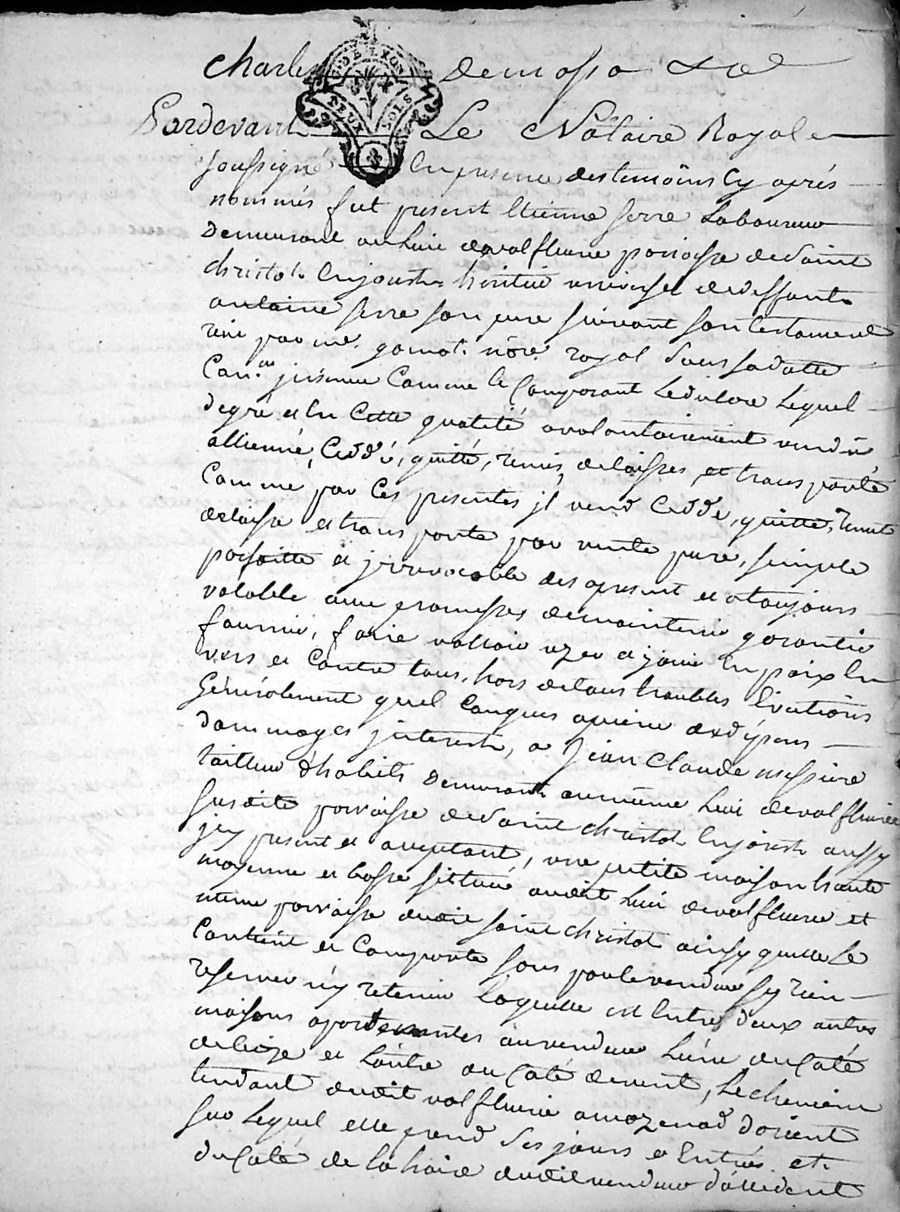 Charles Demossa
Pardevant Le Notaire Royal
soussigné En presence des temoins Cy aprés
nommés fut present Etienne serre Laboureur
demeurant au Lieu de valfleurie paroisse de Saint
christot En jarest heritier universel de deffunt
antoine serre son pere suivant son testament
recu par me. nore. royal sous sa datte
Con.... Comme le Composant Lequel
de gré et En Cette qualité a volontairement vendu
allienné, Ceddé, quitté, remis, delaisses, et transporté
Comme par Ces presentes jl vend Cedde, quitte, remet
delaisse et transporte par vente pure, simple
parfaitte et jrrevocable des apresent et a toujours
valable avec promesses de maintenir garantir
fournir, faire valloir uzer et jouir En paix En
vers et Contre tous, hors de tous troubles Evictions
Generalement quel Conques a peine de dépens
dommages jnterests, a Jean Claude messiere
tailleur d'habits demeurant au même Lieu de valfleurie
susdite parroisse de Saint christot En jarest aussy
jcy present et acceptant, une petite maison haute
moyenne et basse scittuée audit Lieu de valfleurie et
même parroisse dudit saint christot ainsy quelle Se
Contient et Comporte sous par le vendeur sy rien
reserver n'y retenir Laquelle est Entre deux autres
maisons apartenantes au vendeur Lune du Caté
de bize et Lautre du Caté de vent, Le chemin
tendant dudit valfleurie a d'orient
sur Lequel elle prend Ses jours et Entrées et
du Caté de La haire dudit vendeur d'occident